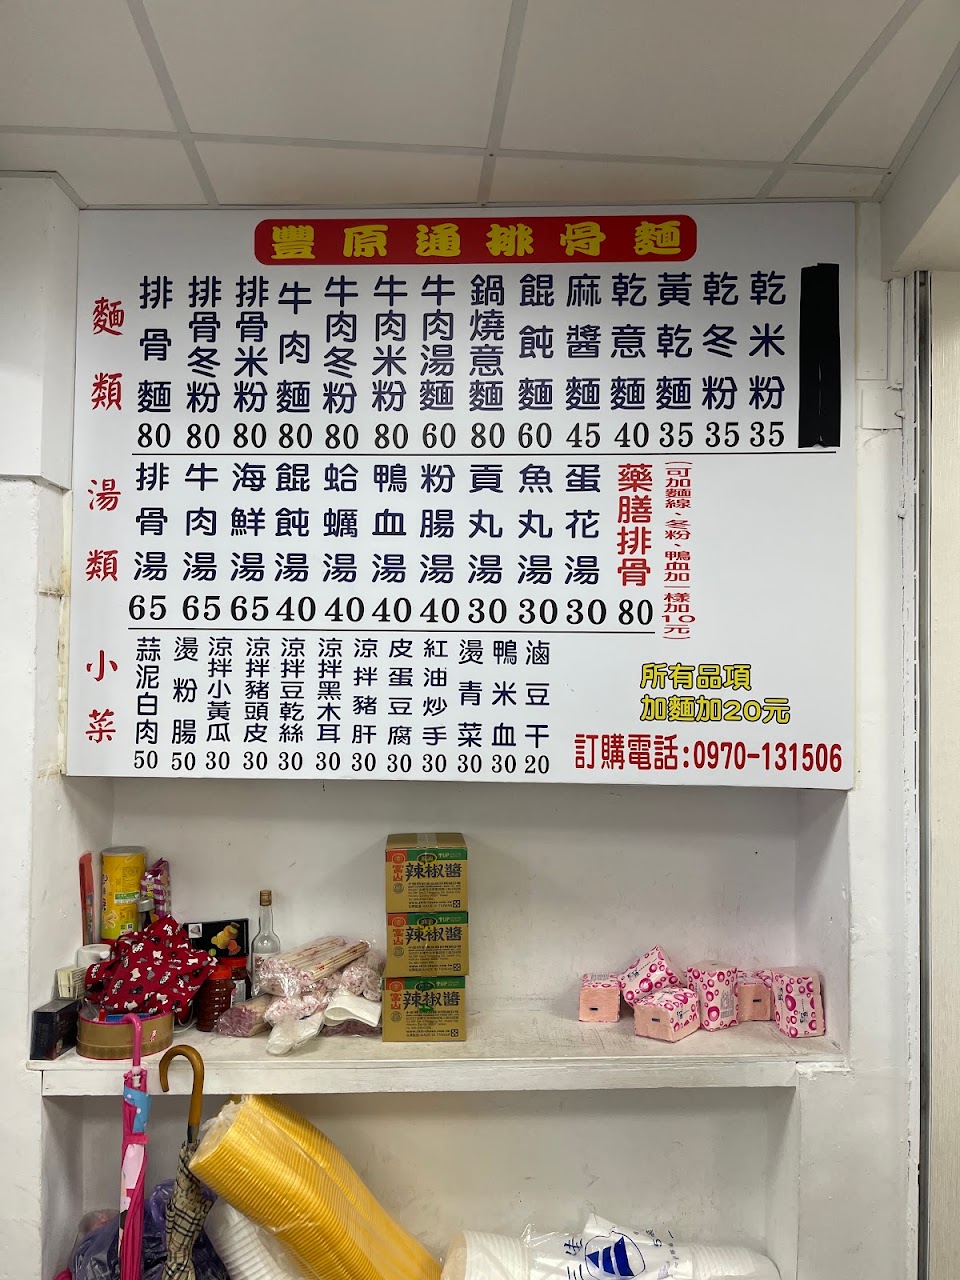 豐原通排骨麵
麵類
排骨麵 80
排骨冬粉 80
排骨米粉 80
牛肉麵 80
牛肉冬粉 80
牛肉米粉 80
牛肉湯麵 60
鍋燒意麵 80
餛飩麵 60
麻醬麵 45
乾意麵 40
黃乾麵 35
乾冬粉 35
乾米粉 35
湯類
排骨湯 65
牛肉湯 65
海鮮湯 65
餛飩湯 40
蛤蠣湯 40
鴨血湯 40
粉腸湯 40
貢丸湯 30
魚丸湯 30
蛋花湯 30
藥膳排骨 80
(可加麵線、冬粉、鴨血加一樣加10元)
小菜
蒜泥白肉 50
燙粉腸 50
涼拌小黃瓜 30
涼拌豬頭皮 30
涼拌豆乾絲 30
涼拌黑木耳 30
涼拌豬肝 30
皮蛋豆腐 30
紅油炒手 30
燙青菜 30
鴨米血 30
滷豆干 20
所有品項
加麵加20元
訂購電話:0970-131506
富山 辣椒醬
富山 辣椒醬
富山 辣椒醬